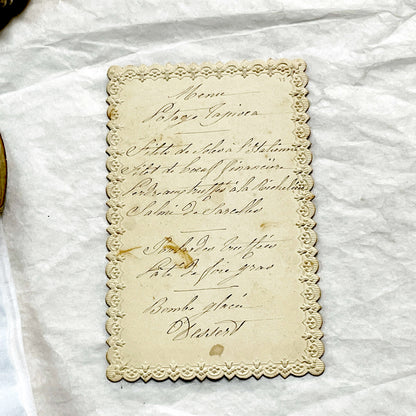 Menu
Potage Tapioca
Filets de Soles à l'Italienne
Filet de boeuf financière
Perdreaux truffés à la Richelieu
Salmi de Sarcelles
Poulardes Truffées
Pâté de foie gras
Bombe glacée
Dessert